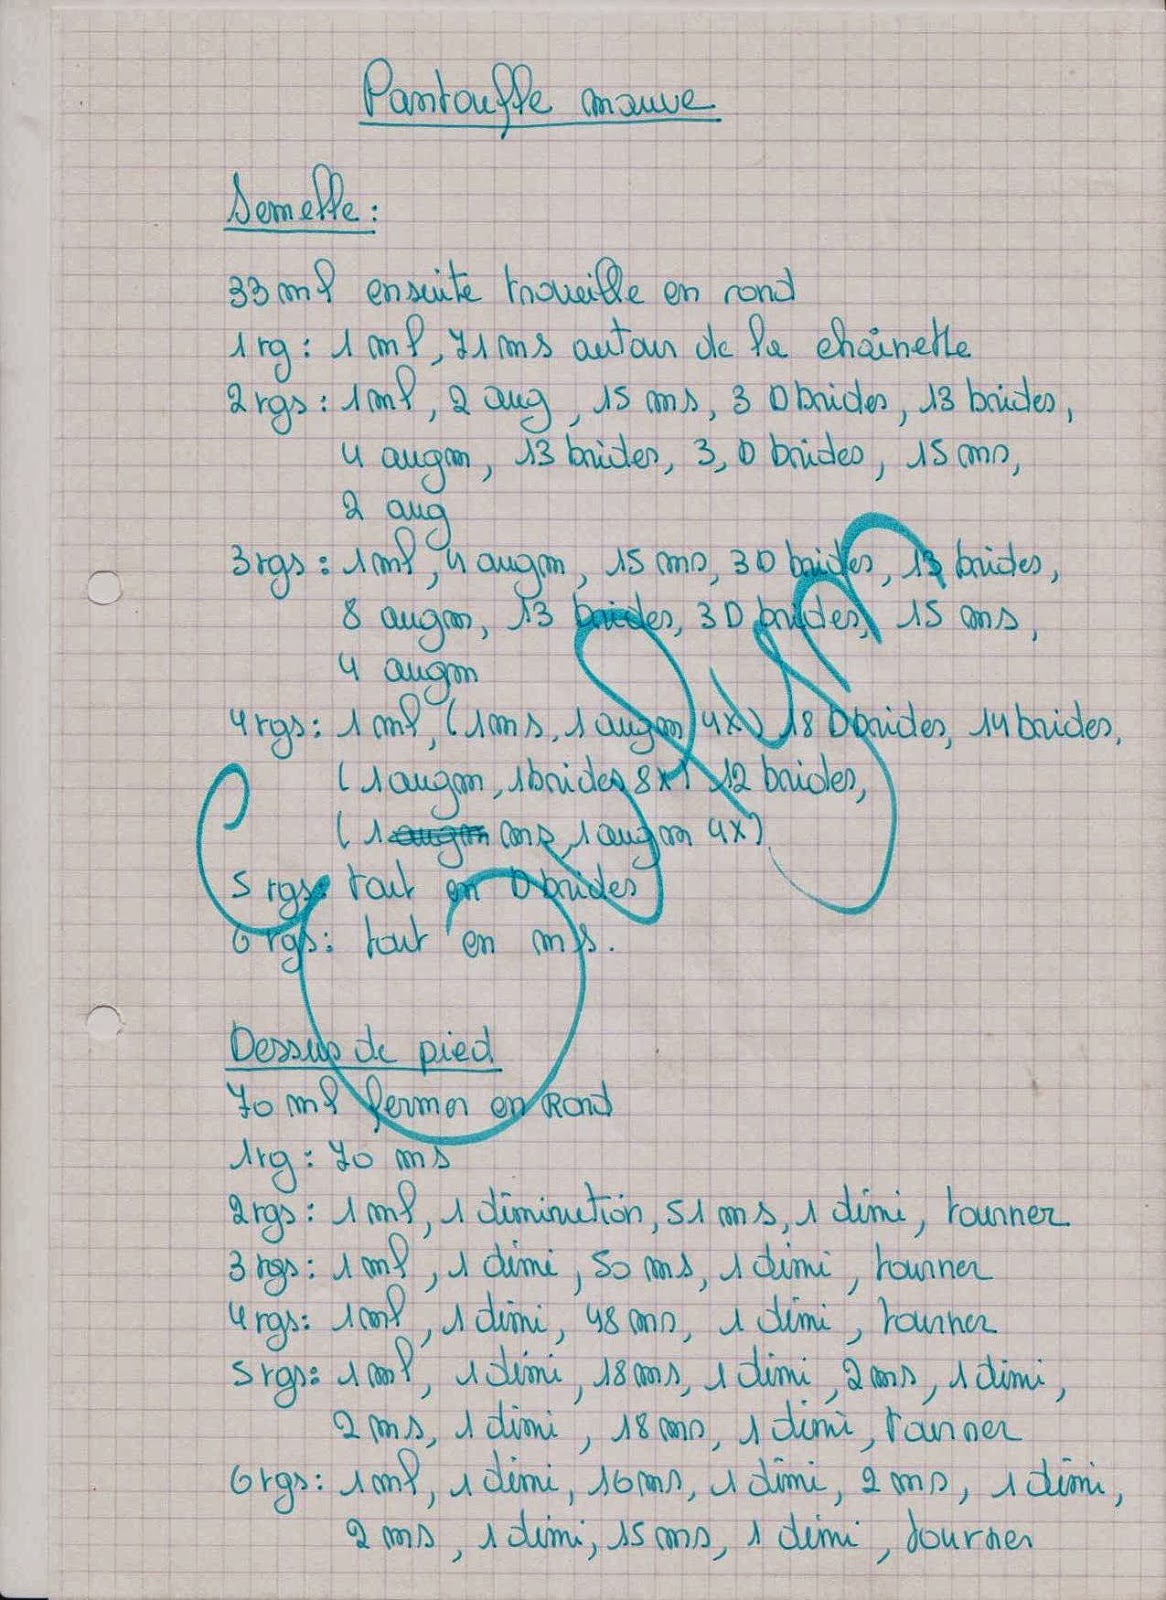 Pantouffle mauve
Semelle :
33 ml ensuite traveille en rond
1 rg : 1 ml, 71 ms autour de la chaînette
2 rgs : 1 ml, 2 aug, 15 ms, 3 D brides, 13 brides,
4 augm, 13 brides, 3, D brides, 15 ms,
2 aug
3 rgs : 1 ml, 4 augm, 15 ms, 3 D brides, 13 brides,
8 augm, 13 brides, 3 D brides, 15 ms,
4 augm
4 rgs : 1 ml, (1 ms, 1 augm 4x) 18 D brides, 14 brides,
(1 augm, 1 brides 8x) 12 brides,
(1 ms, 1 augm 4x)
5 rgs : tout en D brides
6 rgs : tout en ms.
Dessus de pied
70 ml fermer en Rond
1 rg : 70 ms
2 rgs : 1 ml, 1 diminution, 51 ms, 1 dimi, tourner
3 rgs : 1 ml, 1 dimi, 50 ms, 1 dimi, tourner
4 rgs : 1 ml, 1 dimi, 48 ms, 1 dimi, tourner
5 rgs : 1 ml, 1 dimi, 18 ms, 1 dimi, 2 ms, 1 dimi,
2 ms, 1 dimi, 18 ms, 1 dimi, tourner
6 rgs : 1 ml, 1 dimi, 16 ms, 1 dimi, 2 ms, 1 dimi,
2 ms, 1 dimi, 15 ms, 1 dimi, tourner